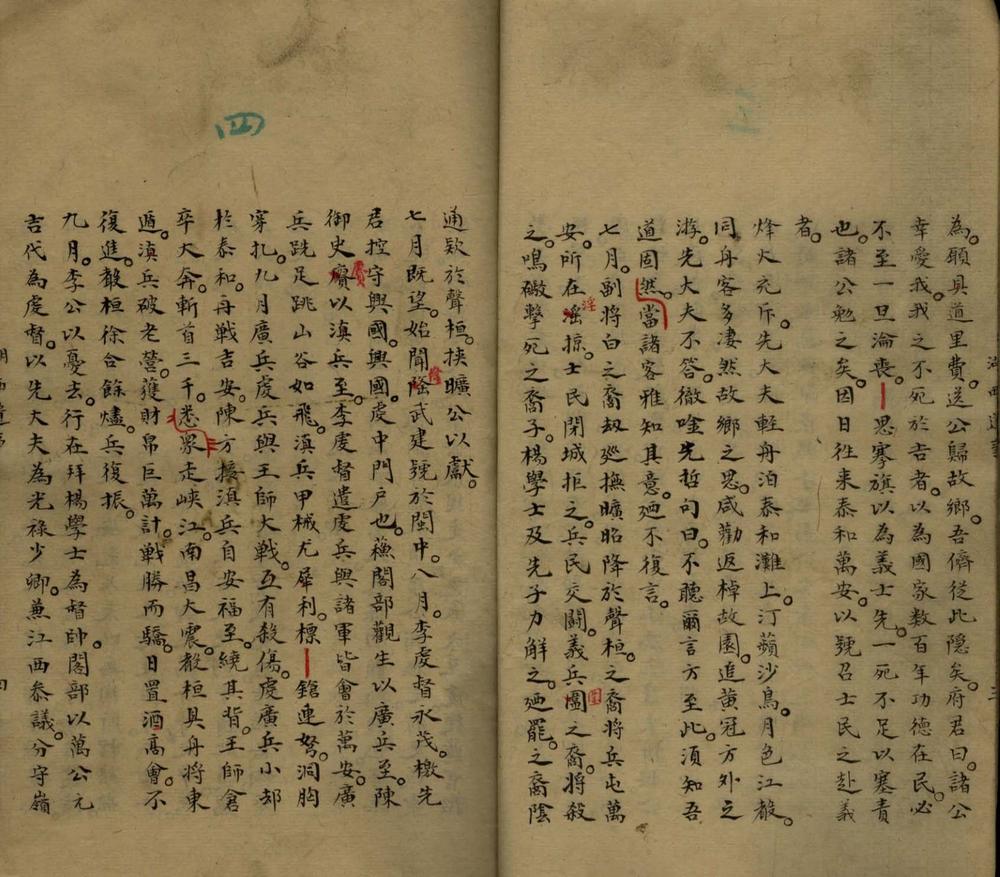 三
為。願具道里費。送公歸故鄉。吾儕從此隱矣。府君曰。諸公
幸愛我。我之不死於吉者。以為國家数百年功德在民。必
不至一旦淪喪。思搴旗以為義士先。一死不足以塞責
也。諸公勉之矣。因日往来泰和萬安。以號召士民之赴義
者。
烽火充斥。先大夫輕舟泊泰和灘上。汀蘋沙鳥。月色江聲。
同舟客多淒然故鄉之思。咸勸返棹故園。追黄冠方外之
游。先大夫不答。微唫先哲句曰。不聽爾言方至此。須知吾
道固然。當諸客雅知其意。廼不復言。
七月。副將白之裔刼廵撫曠昭降於聲桓。之裔將兵屯萬
安。所在滛淫掠。士民閉城拒之。兵民交鬪。義兵圍之裔。將殺
之。鳴磤擊死之裔子。楊學士及先子力解之。廼罷。之裔陰
四
通欵於聲桓。挟曠公以獻。
七月既望。始聞隆武建號於閩中。八月。李虔督永茂。檄先
君控守興國。興國。虔中門户也。蘓閣部觀生以廣兵至。陳
御史賡以滇兵至。李虔督遣虔兵與諸軍皆會於萬安。廣
兵跣足跳山谷如飛。滇兵甲械尤犀利。標鎗連弩。洞胸
穿扎。九月廣兵虔兵與王師大戰。互有殺傷。虔廣兵小却
於泰和。舟戰吉安。陳方接滇兵自安福至。繞其背。王師倉
卒大奔。斬首三千。悉眾走峡江。南昌大震。聲桓具舟將東
遁。滇兵破老營。獲財帛巨萬計。戰勝而驕。日置酒高會。不
復進。聲桓徐合餘燼。兵復振。
九月。李公以憂去。行在拜楊學士為督帥。閣部以萬公元
吉代為虔督。以先大夫為光禄少卿。兼江西叅議。分守嶺